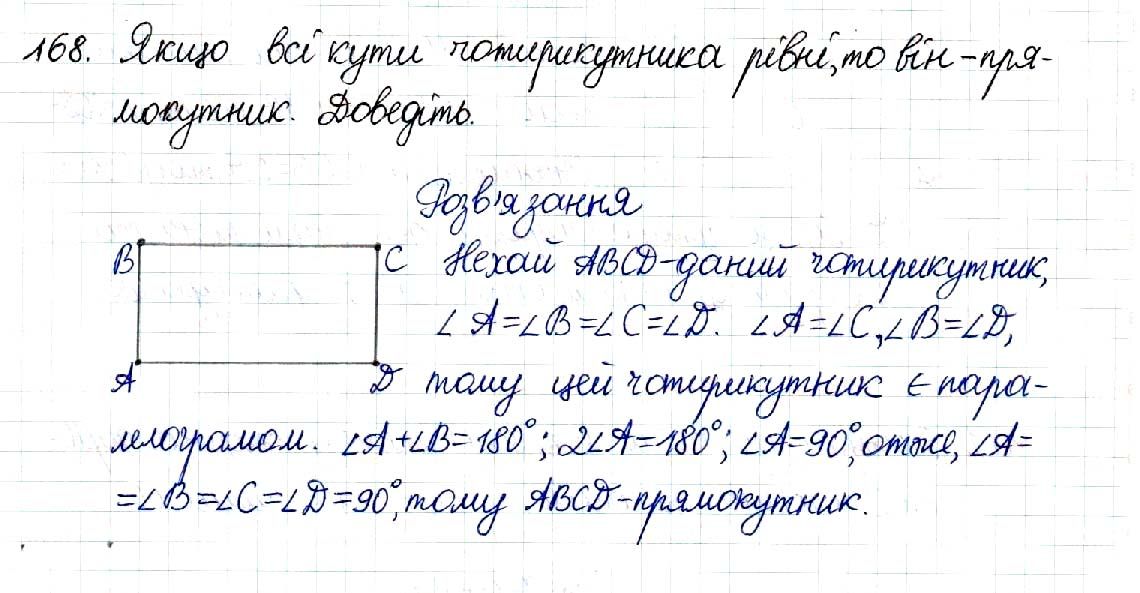 168. Якщо всі кути чотирикутника рівні, то він - пря-
мокутник. Доведіть.
Розв'язання
B C Нехай ABCD - даний чотирикутник,
∠A=∠B=∠C=∠D. ∠A=∠C, ∠B=∠D,
A D тому цей чотирикутник є пара-
лелограмом. ∠A+∠B=180°; 2∠A=180°; ∠A=90°, отже, ∠A=
=∠B=∠C=∠D=90°, тому ABCD - прямокутник.